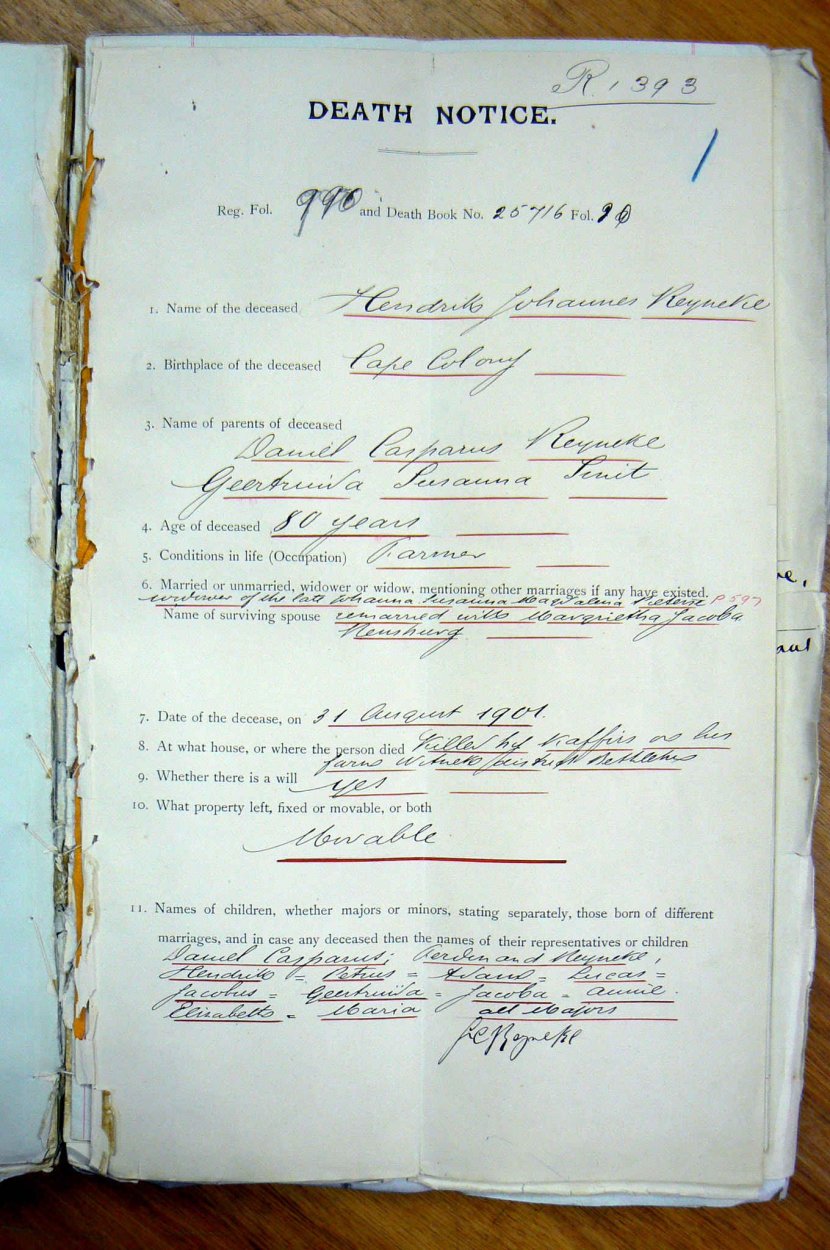 R 1393
DEATH NOTICE.
1
Reg. Fol. 990 and Death Book No. 25716 Fol. 90
1. Name of the deceased Hendrik Johannes Reyneke
2. Birthplace of the deceased Cape Colony
3. Name of parents of deceased
Daniel Casparus Reyneke
Geertruida Susanna Smit
4. Age of deceased 80 years
5. Conditions in life (Occupation) Farmer
6. Married or unmarried, widower or widow, mentioning other marriages if any have existed.
widower of the late Johanna Susanna Magdalena Pieterse P 597
Name of surviving spouse remarried with Margrietha Jacoba
Rensburg
7. Date of the decease, on 31 August 1901.
8. At what house, or where the person died Killed by Kaffirs on his
farm Witnek District Bethlehem
9. Whether there is a will yes
10. What property left, fixed or movable, or both
Movable
11. Names of children, whether majors or minors, stating separately, those born of different
marriages, and in case any deceased then the names of their representatives or children
Daniel Casparus; Ferdinand Reyneke,
Hendrik = Petrus = Adam = Lucas =
Jacobus = Geertruida = Jacoba = Annie.
Elisabeth = Maria all Majors
Reyneke